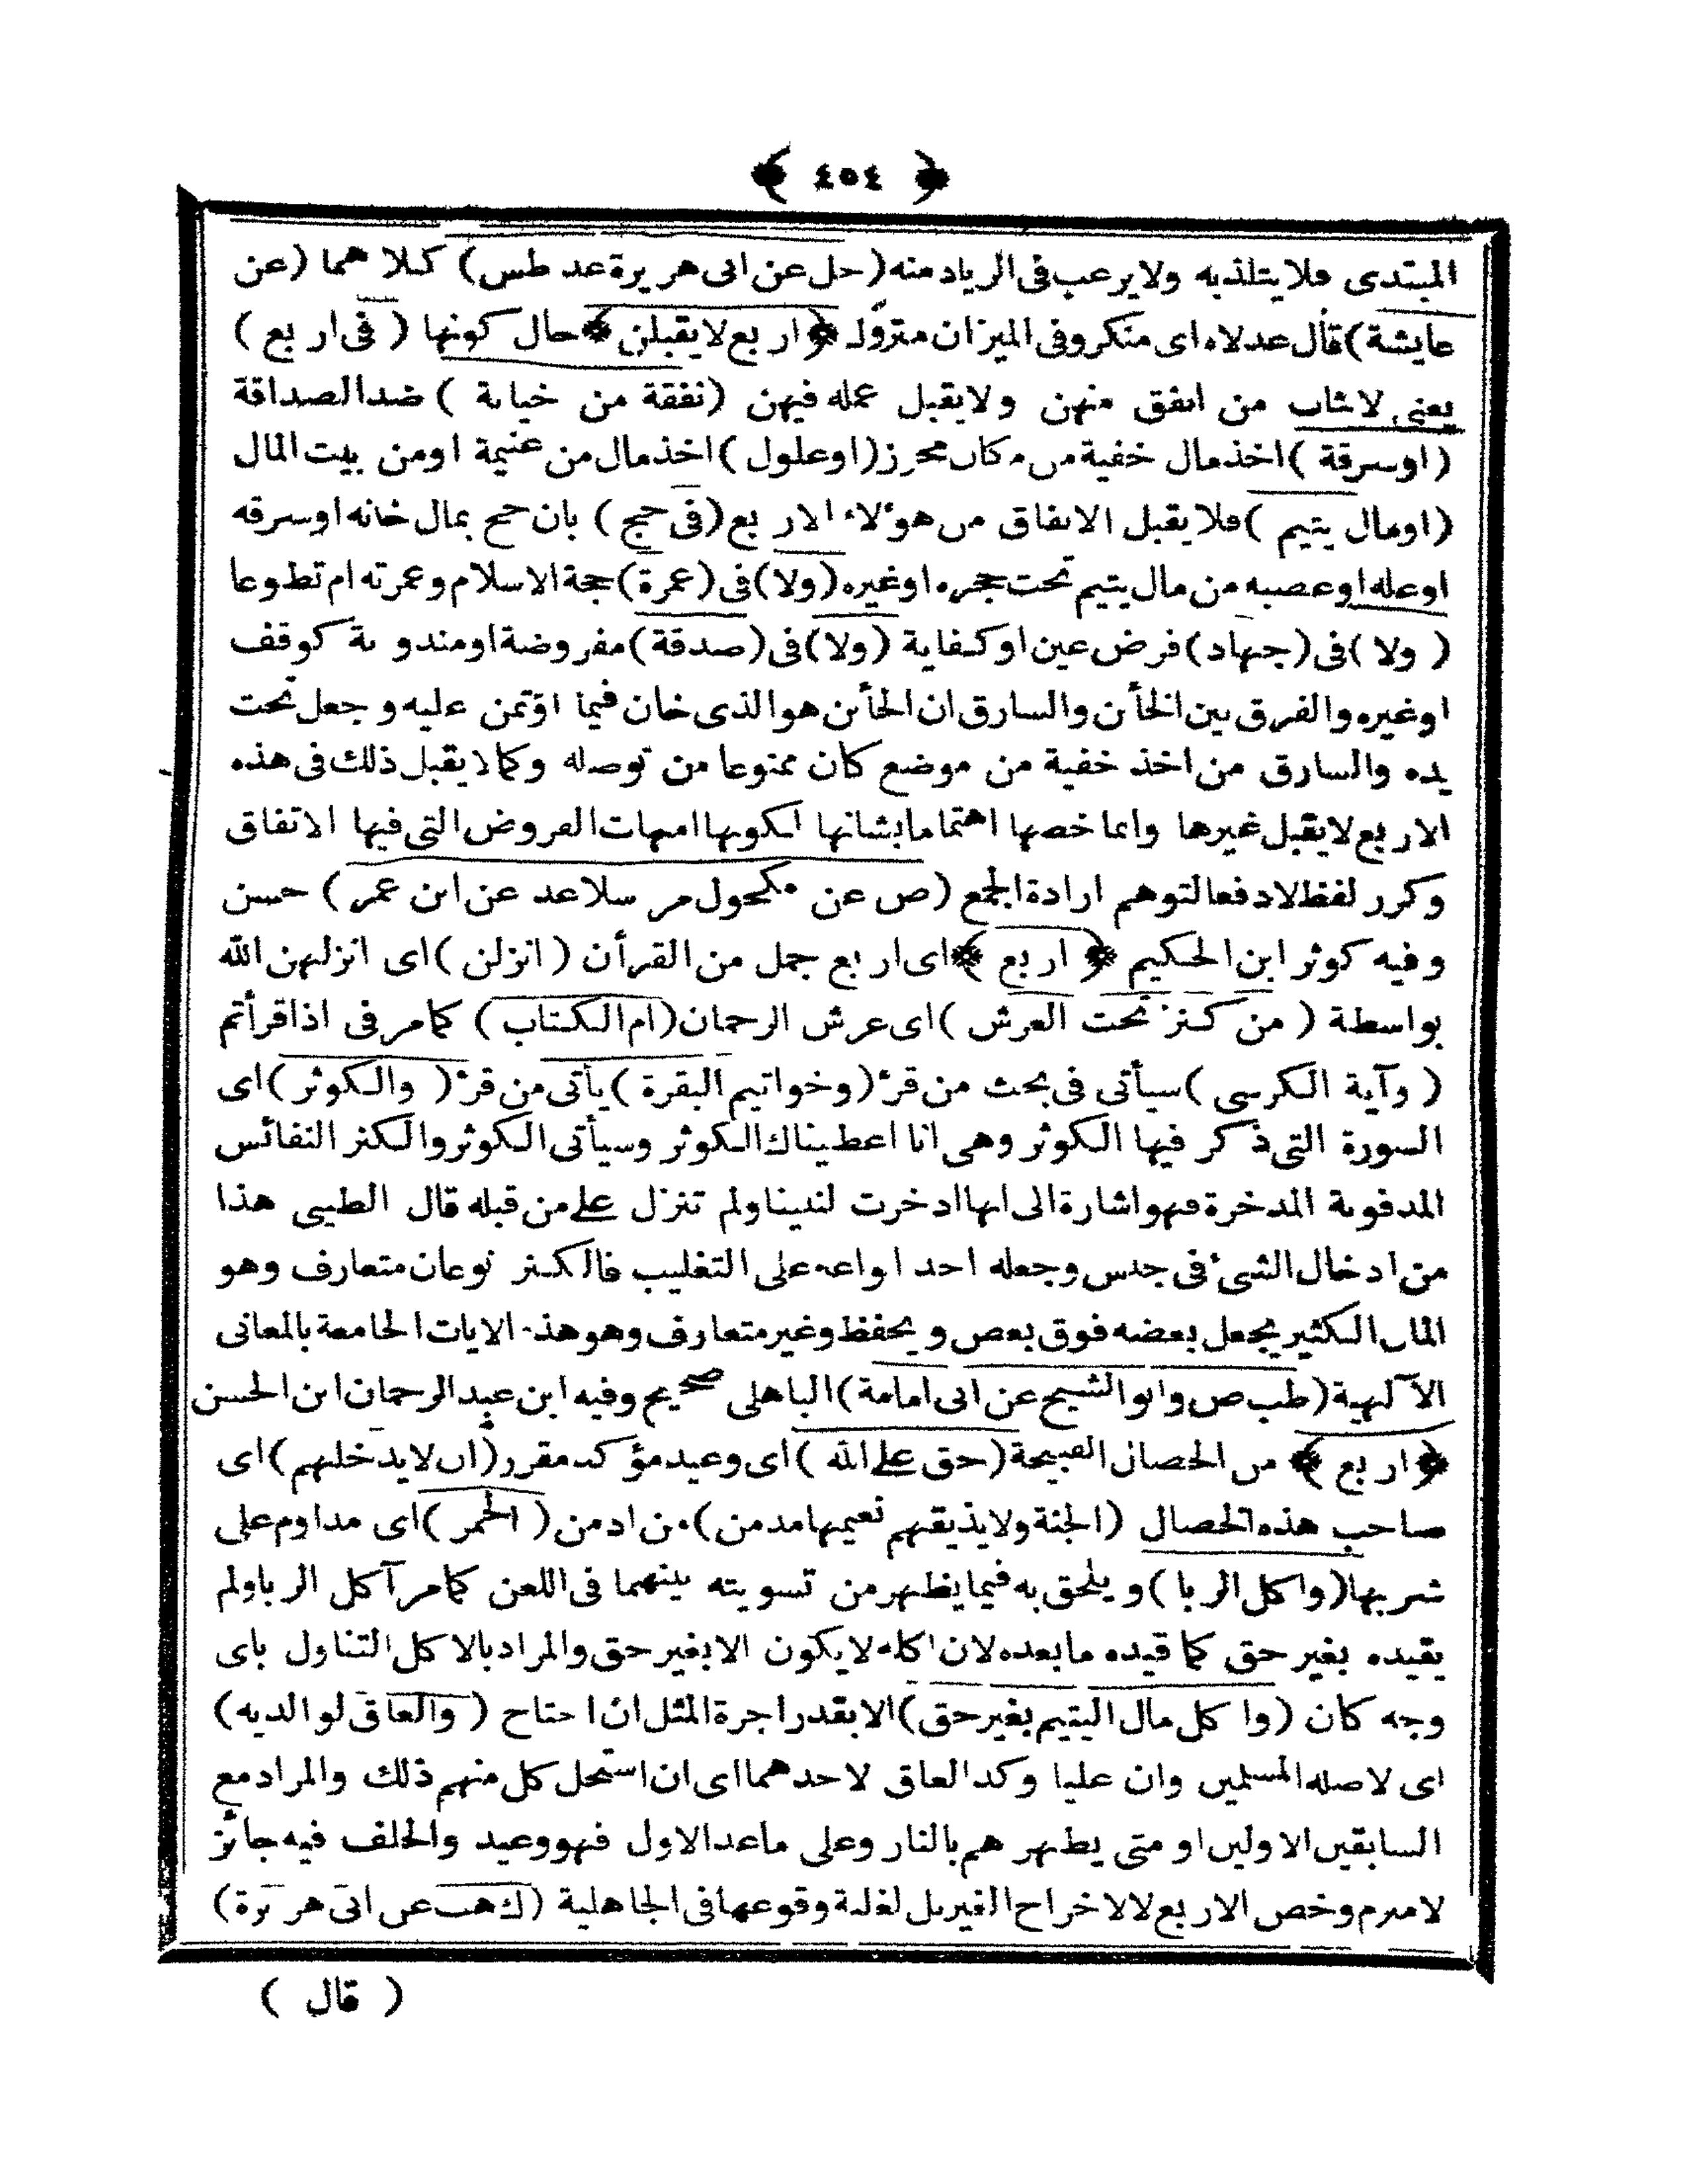 ﴿ ٤٥٤ ﴾
المبتدى فلا يتلذبه ولا يرغب فى الزياد منه (حل عن ابى هريرة عد طس) كلاهما (عن
عايشة) قال عد لاه اى منكر وفى الميزان متروك ﴿ اربع لا يقبلن ﴾ حال كونها (فى اربع)
يعنى لا يثاب من انفق منهن ولا يقبل عمله فيهن (نفقة من خيانة) ضد الصداقة
(او سرقة) اخذ مال خفية من مكان محرز (او غلول) اخذ مال من غنيمة او من بيت المال
(او مال يتيم) فلا يقبل الانفاق من هؤلاء الاربع (فى حج) بان حج بمال خانه او سرقه
او غله او غصبه من مال يتيم تحت حجره او غيره (ولا) فى (عمرة) حجة الاسلام وعمرته ام تطوعا
(ولا) فى (جهاد) فرض عين او كفاية (ولا) فى (صدقة) مفروضة او مندوبة كوقف
او غيره والفرق بين الخأن والسارق ان الخأن هو الذى خان فيما اؤتمن عليه وجعل تحت
يده والسارق من اخذ خفية من موضع كان ممنوعا من توصله وكما لا يقبل ذلك فى هذه
الاربع لا يقبل غيرها وانما خصها اهتماما بشانها لكونها امهات الفروض التى فيها الاتفاق
وكرر لفظ لا دفعا لتوهم ارادة الجمع (ص عن مكحول مرسلا عد عن ابن عمر) حسن
وفيه كوثر ابن الحكيم ﴿ اربع ﴾ اى اربع جمل من القرأن (انزلن) اى انزلهن الله
بواسطة (من كنز تحت العرش) اى عرش الرحمان (ام الكتاب) كمامر فى اذا قرأتم
(وآية الكرسى) سيأتى فى بحث من قرء (وخواتيم البقرة) يأتى من قرء (والكوثر) اى
السورة التى ذكر فيها الكوثر وهى انا اعطيناك الكوثر وسيأتى الكوثر والكنز النفائس
المدفونة المدخرة فهو اشارة الى انها ادخرت لنبينا ولم تنزل على من قبله قال الطيبى هذا
من ادخال الشىء فى جنس وجعله احد انواعه على التغليب فالكنز نوعان متعارف وهو
المال الكثير يجعل بعضه فوق بعض ويحفظ وغير متعارف وهو هذه الايات الجامعة بالمعانى
الآلهية (طب ص وابو الشيخ عن ابى امامة) الباهلى صحيح وفيه ابن عبد الرحمان ابن الحسن
﴿ اربع ﴾ من الخصال القبيحة (حق على الله) اى وعيد مؤكد مقرر (ان لا يدخلهم) اى
صاحب هذه الخصال (الجنة ولا يذيقهم نعيمها مدمن) من ادمن (الخمر) اى مداوم على
شربها (واكل الربا) ويلحق به فيما يظهر من تسويته بينهما فى اللعن كمامر آكل الربا ولم
يقيده بغير حق كما قيده ما بعده لان اكله لا يكون الا بغير حق والمراد بالاكل التناول باى
وجه كان (واكل مال اليتيم بغير حق) الا بقدر اجرة المثل ان احتاح (والعاق لوالديه)
اى لاصله المسلمين وان عليا وكد العاق لاحدهما اى ان استحل كل منهم ذلك والمراد مع
السابقين الاولين او متى يطهرهم بالنار وعلى ماعد الاول فهو وعيد والخلف فيه جائز
لامبرم وخص الاربع لا لاخراح الغير بل لغلبة وقوعها فى الجاهلية (ك هب عن ابى هريرة)
( قال )